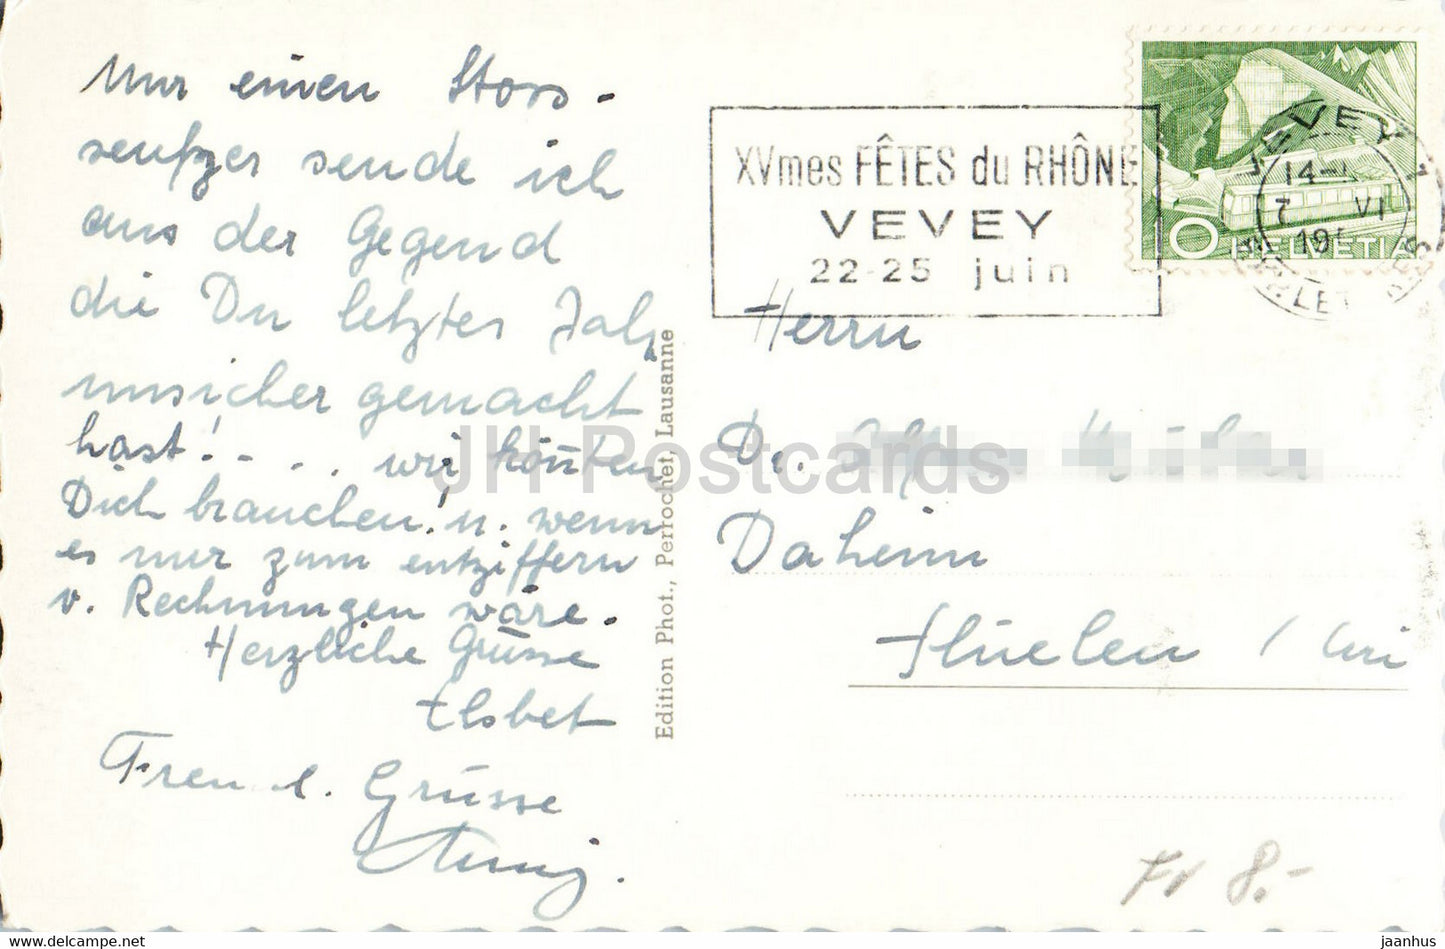 Nur einen Stoss-
seufzer sende ich
aus der Gegend
die Du letztes Jahr
unsicher gemacht
hast! - . . . wir könnten
Dich brauchen! u. wenn
es nur zum entziffern
v. Rechnungen wäre.
Herzliche Grüsse
Elsbet
Freundl. Grüsse
Edition Phot., Perrochet, Lausanne
XVmes FÊTES du RHÔNE
VEVEY
22-25 juin
VEVEY 1
14-
7 VI
195
10 HELVETIA
Herrn
Dr.
Daheim
Flüelen / Uri
Fr 8.-
JH Postcards
www.delcampe.net
jaanhus